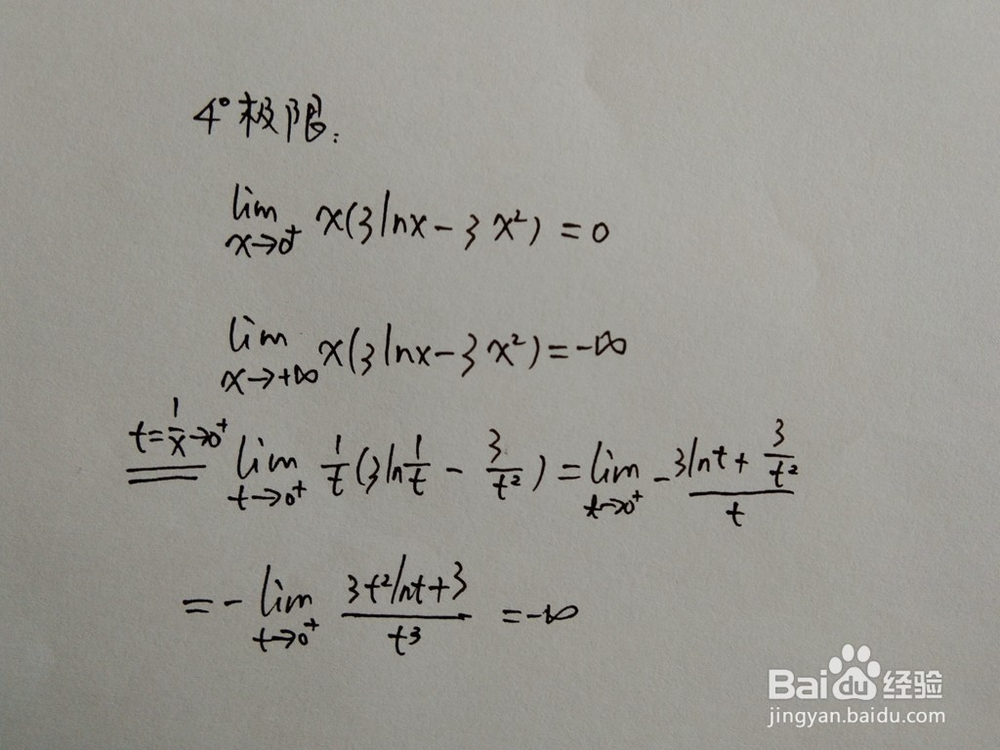 4°极限:
lim x→0⁺ x(3lnx-3x²)=0
lim x→+∞ x(3lnx-3x²)=-∞
t=1/x→0⁺ lim t→0⁺ 1/t(3ln1/t - 3/t²)=lim t→0⁺ -(3lnt+3/t²)/t
=-lim t→0⁺ (3t²lnt+3)/t³ =-∞
Baidu经验
jingyan.baidu.com